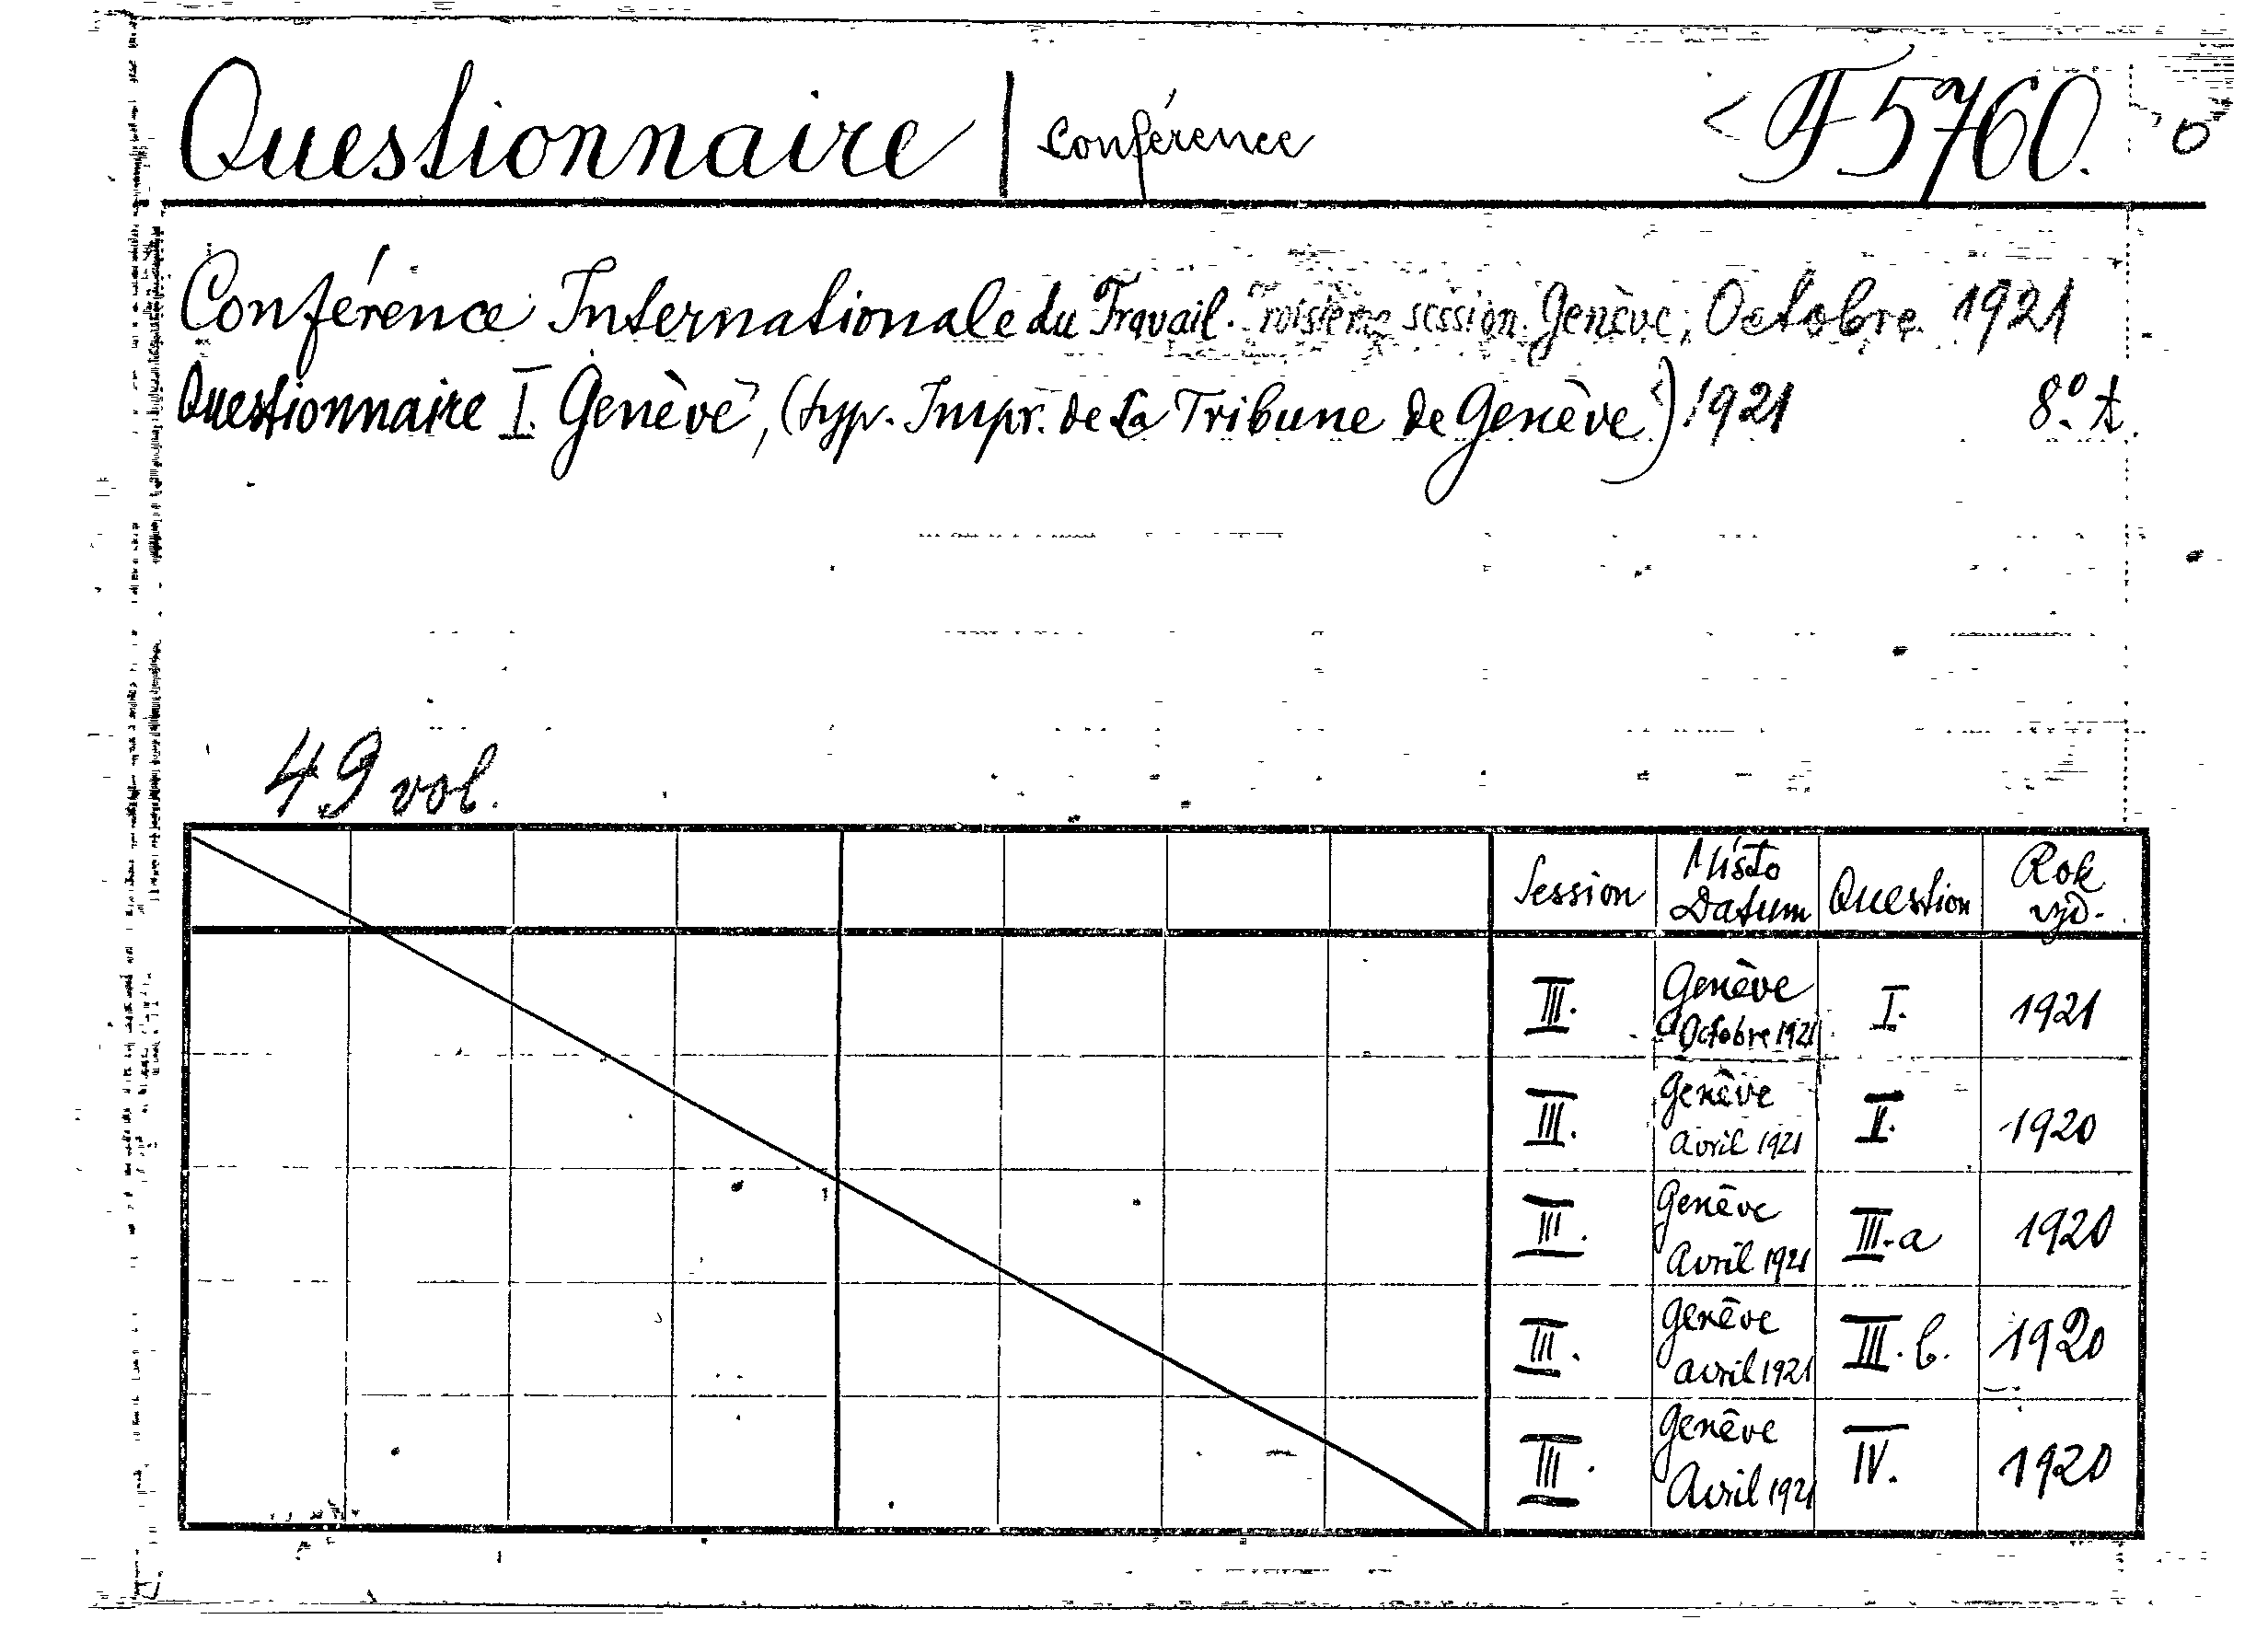 Questionnaire | conférence F 5760.
Conférence Internationale du Travail. Troisième session. Genève, Octobre 1921
Questionnaire I. Genève, (typ. Impr. de La Tribune de Genève) 1921 8° t.
49 vol.
Session Místo Datum Question Rok vyd.
III. Genève Octobre 1921 I. 1921
III. Genève avril 1921 II. 1920
III. Genève Avril 1921 III.a 1920
III. Genève avril 1921 III.b. 1920
III. Genève Avril 1921 IV. 1920